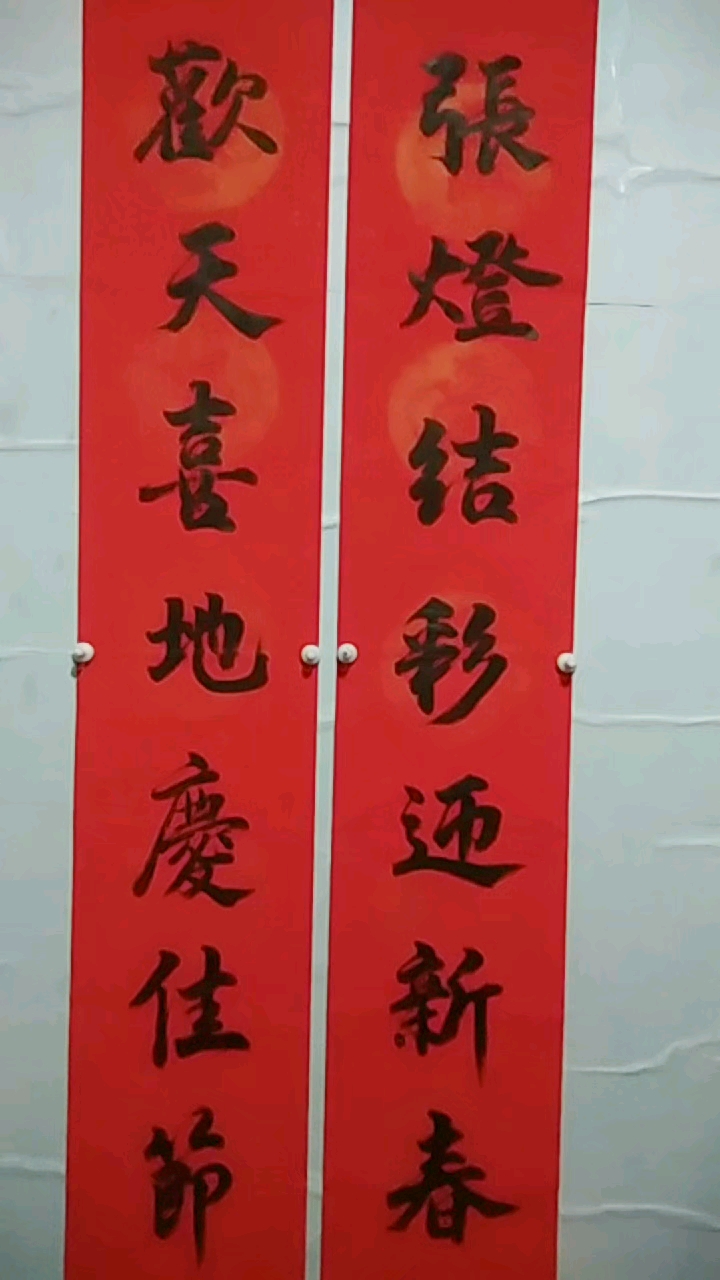 張燈结彩迊新春
歡天喜地慶佳節